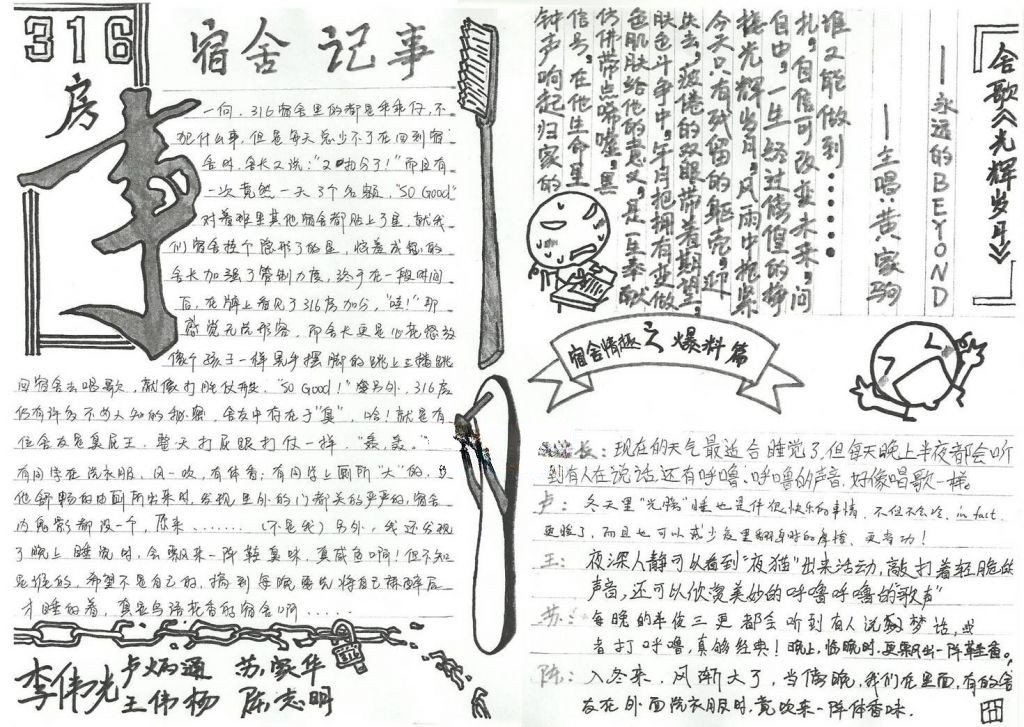 316
房
事
宿舍 记事
一向，316宿舍里的都是乖乖仔，不
犯什么事，但是每天总少不了在回到宿
舍时，舍长又说：“又扣分了！”而且有
一次竟然一天3个名额，“SO Good”
对着班里其他宿舍都贴上了星，就我
们宿舍挂个隐形了的星，恼羞成怒的
舍长加强了管制力度，终于在一段时间
后，在牌上看见了316房加分，“哇！”那
感觉无法形容，而舍长更是心花怒放
像个孩子一样晃手摆脚的跳上
回宿舍去唱歌，就像打胜仗般，“SO Good！”另外，316房
仍有许多不为人知的秘密，舍友中存在于“臭”，哈！就是有
位舍友是臭屁王，整天打屁跟打仗一样，
有同学在洗衣服，风一吹，有体香；有同学上厕所“大”的，当
他舒畅的由厕所出来时，发现里外的门都关的严严的，宿舍
内
原来.......（不是我）另外，我还发现
了晚上睡觉时，会飘来一阵鞋臭味，真咸鱼啊！但不知
是谁的，希望不是自己的，搞到每晚要先将自己
才睡的着，真是鸟语花香的宿舍啊......
李伟光 卢炳通 苏家华
王伟杨 陈志明
舍歌《光辉岁月》
——永远的BEYOND
——主唱：黄家驹
钟声响起归家的
信号，在他生命里
仿佛带点唏嘘，黑
色肌肤给他的意义，是一生奉献
肤色斗争中，年月把拥有变做
失去，疲倦的双眼带着期望，
今天只有残留的躯壳，迎
接光辉岁月，风雨中抱紧
自由，一生经过彷徨的挣
扎，自信可改变未来，问
谁又能做到......
宿舍情趣之爆料篇
长：现在的天气最适合睡觉了，但每天晚上半夜都会听
到有人在说话，还有呼噜、呼噜的声音，好像唱歌一样。
卢：冬天里“光膀”睡也是件很快乐的事情，不但不会冷，in fact
更暖了，而且也可以减少夜里翻身时的摩擦，更有劲！
王：夜深人静可以看到“夜猫”出来活动，敲打着轻脆的
声音，还可以欣赏美妙的呼噜呼噜的“歌声”
苏：每晚的半夜三更都会听到有人说梦话，或
者打呼噜，真够经典！晚上，临晚时，更飘出一阵鞋香。
陈：入冬来，风渐大了，当傍晚，我们在里面，有的舍
友在外面洗衣服时，竟吹来一阵体香味。